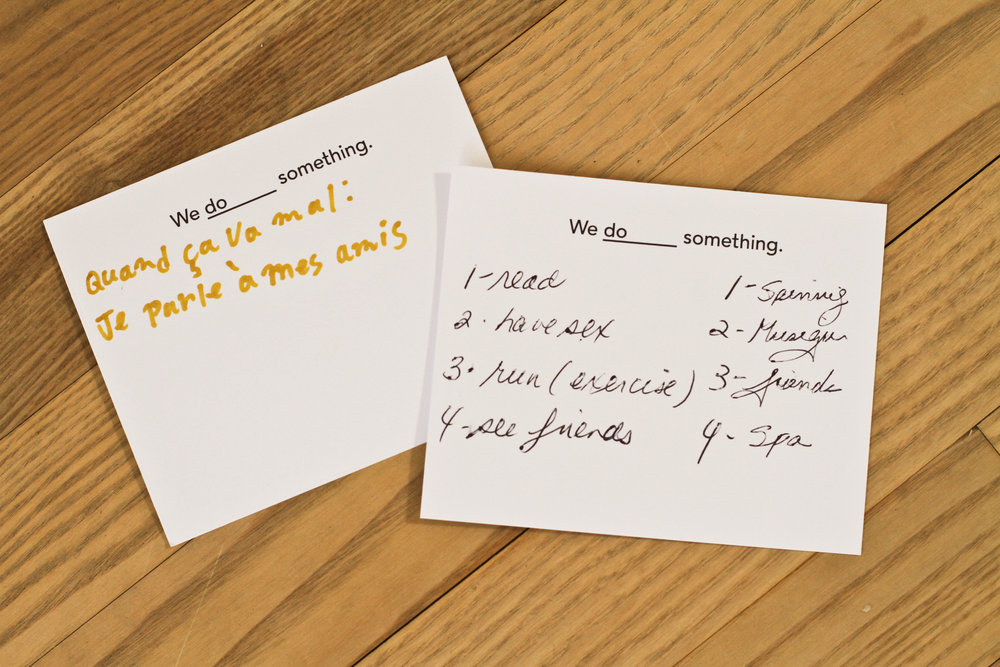 We do ____ something.
Quand ça va mal:
Je parle à mes amis
We do ____ something.
1-read
2. have sex
3. run (exercise)
4-see friends
1-Spinning
2-
3-friends
4-Spa